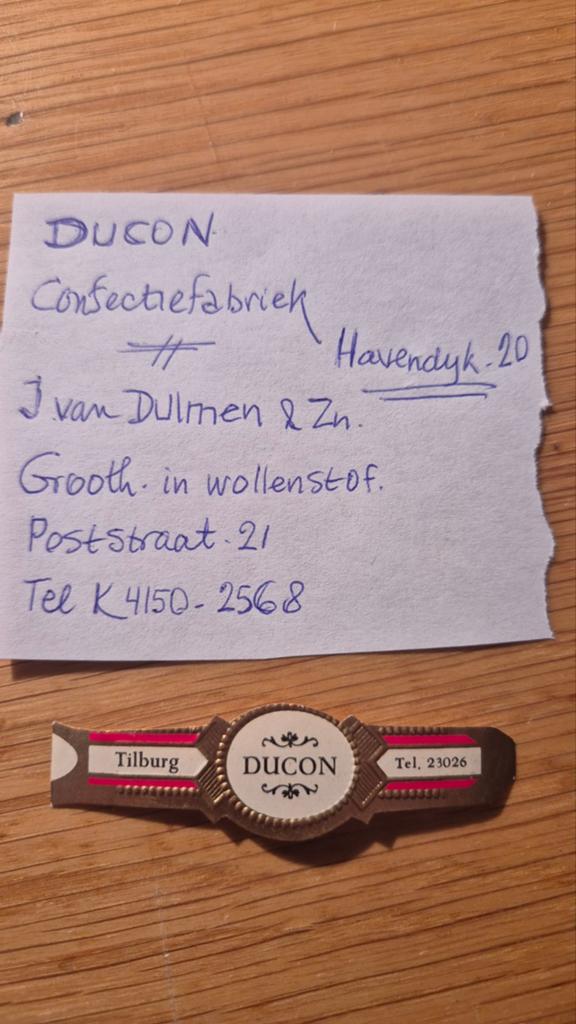 DUCON
Confectiefabriek
Havendyk. 20
J. van Dulmen & Zn.
Grooth. in wollenstof.
Poststraat. 21
Tel K4150- 2568
Tilburg
DUCON
Tel. 23026